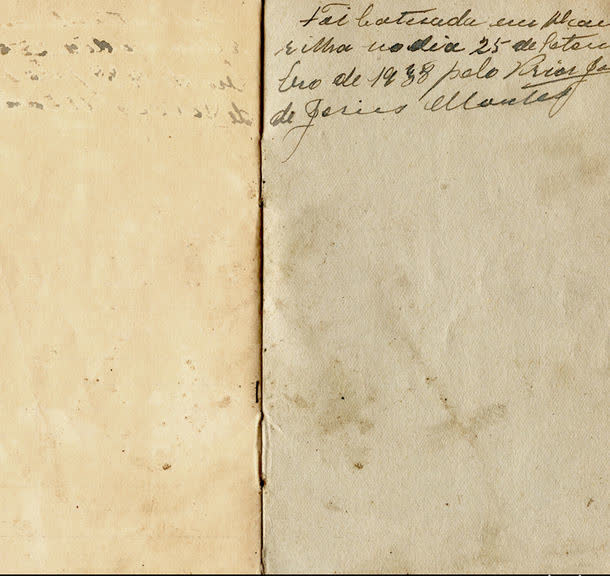 Foi batisada em
rilha no dia 25 de Setem
bro de 1938 pelo Prior
de Jesus Montes